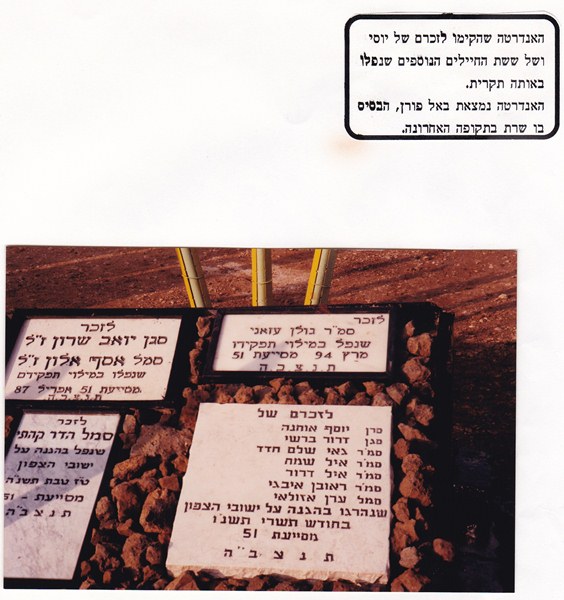 האנדרטה שהקימו לזכרם של יוסי
ושל ששת החיילים הנוספים שנפלו
באותה תקרית.
האנדרטה נמצאת באל פורן, הבסיס
בו שרת בתקופה האחרונה.
לזכר
סגן יואב שרון ז"ל
סמל אסף אלון ז"ל
שנפלו במילוי תפקידם
מסייעת 51 אפריל 87
תנצבה
לזכר
סמ"ר גולן עזאני
שנפל במילוי תפקידו
מרץ 94 מסייעת 51
ת נ צ ב ה
לזכר
סמל הדר קהתי
שנפל בהגנה על
ישובי הצפון
טז טבת תשנ"ה
מסייעת - 51
ת נ צ ב ה
לזכרם של
סרן יוסף אוחנה
סגן דרור ברשי
סמ"ר גאי שלם חדד
סמ"ר איל שמח
סמ"ר איל דרור
סמ"ר ראובן איבגי
סמל ערן אזולאי
שנהרגו בהגנה על ישובי הצפון
בחודש תשרי תשנ"ו
מסייעת 51
ת נ צ ב "ה